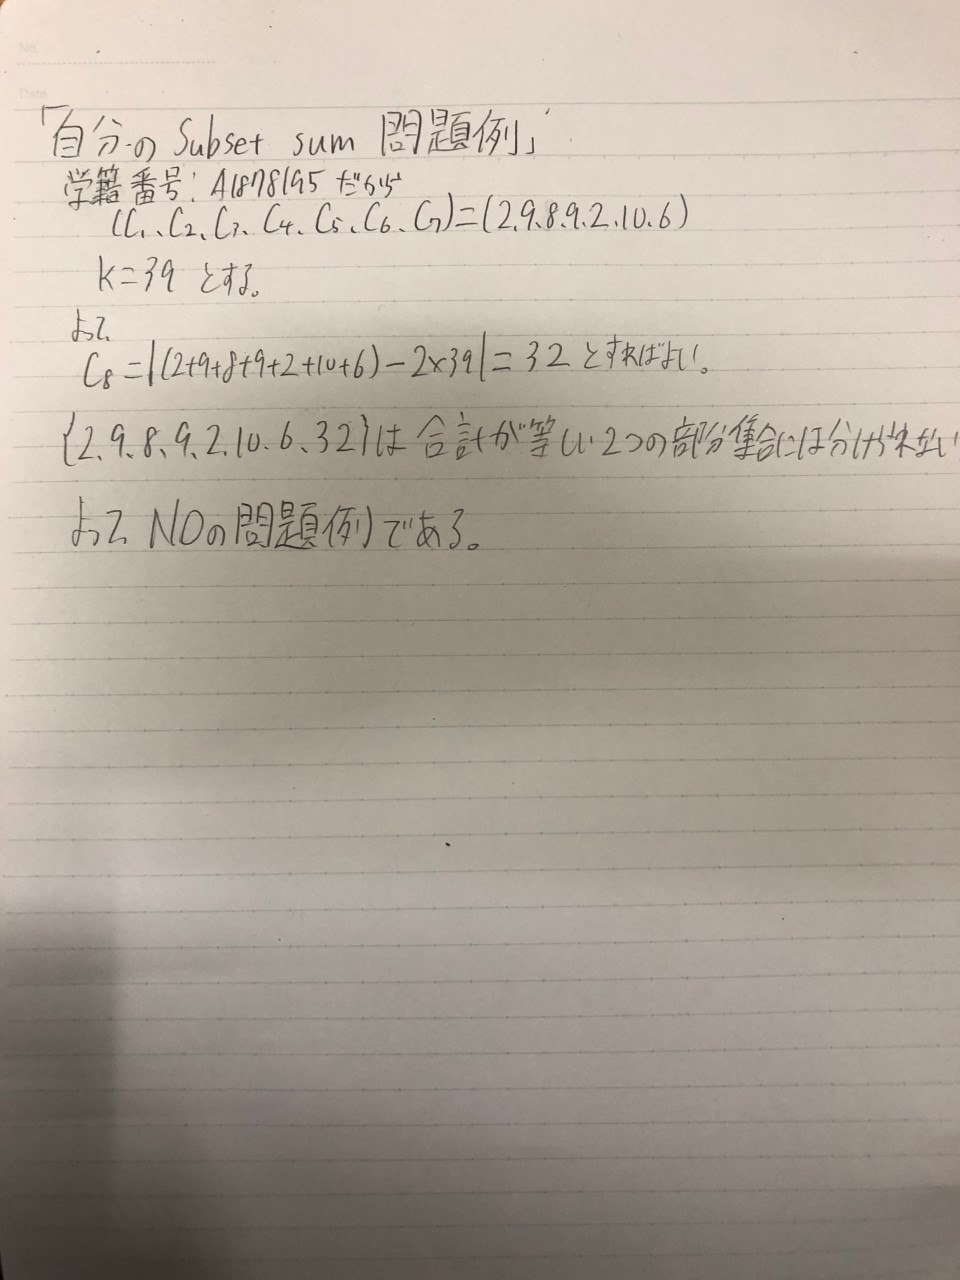 No.
Date
「自分のSubset sum 問題例」
学籍番号: A1878195 だから
(C₁、C₂、C₃、C₄、C₅、C₆、C₇)=(2、9、8、9、2、10、6)
K=39 とする。
よって
C₈=|(2+9+8+9+2+10+6)-2×39|=32とすればよい。
{2、9、8、9、2、10、6、32}は合計が等しい2つの部分集合には分けられない
よってNOの問題例である。